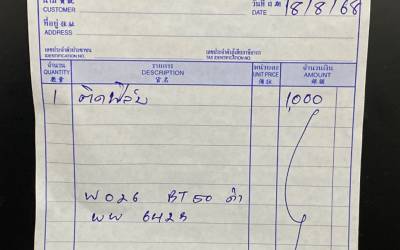 CUSTOMER
วันที่ DATE 18/8/68
ที่อยู่
ADDRESS
เลขประจำตัวประชาชน
IDENTIFICATION NO.
เลขประจำตัวผู้เสียภาษีอากร
TAX IDENTIFICATION NO.
จำนวน รายการ หน่วยละ จำนวนเงิน
QUANTITY DESCRIPTION UNIT PRICE AMOUNT
數量 貨名 價銀
1 ติดฟิล์ม 1,000
BT50 ดำ